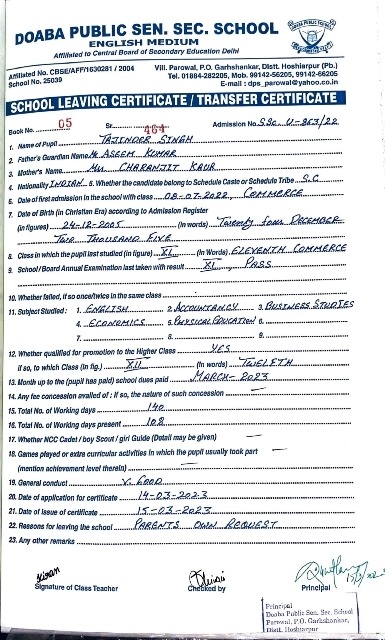 DOABA PUBLIC SEN. SEC. SCHOOL
ENGLISH MEDIUM
Affiliated to Central Board of Secondary Education Delhi
Affiliated No. CBSE/AFF/1630281 / 2004
School No. 25039
Vill. Parowal, P.O. Garhshankar, Distt. Hoshiarpur (Pb.)
Tel. 01884-282205, Mob. 99142-56205, 99142-66205
E-mail : dps_parowal@yahoo.co.in
SCHOOL LEAVING CERTIFICATE / TRANSFER CERTIFICATE
Book No. 05 Sr. 464 Admission No. S.Sc U-353/22
1. Name of Pupil TAJINDER SINGH
2. Father's Guardian Name Mr ASEEM KUMAR
3. Mother's Name Mrs. CHARANJIT KAUR
4. Nationality INDIAN 5. Whether the candidate belong to Schedule Caste or Schedule Tribe S.C
6. Date of first admission in the school with class 08-07-2022, COMMERCE
7. Date of Birth (in Christian Era) according to Admission Register
(in figures) 24-12-2005 (in Words) Twenty four DECEMBER
TWO THOUSAND FIVE
8. Class in which the pupil studied (in figure) XI (in Words) ELEVENTH COMMERCE
9. School / Board Annual Examination last taken with result XI, PASS
10. Whether failed, if so once/twice in the same class
11. Subject Studied : 1. ENGLISH 2. ACCOUNTANCY 3. BUSINESS STUDIES
4. ECONOMICS 5. PHYSICAL EDUCATION 6.
7. 8. 9.
12. Whether qualified for promotion to the Higher Class YES
If so, to which Class (in fig.) XII (in words) TWELETH
13. Month up to the (pupil has paid) school dues paid MARCH-2023
14. Any fee concession availed of : if so, the nature of such concession —
15. Total No. of Working days 140
16. Total No. of Working days present 108
17. Whether NCC Cadet / boy Scout / girl Guide (Detail may be given) —
18. Games played or extra curricular activities in which the pupil usually took part —
(mention achievement level therein) —
19. General conduct V. GOOD
20. Date of application for certificate 14-03-2023
21. Date of issue of certificate 15-03-2023
22. Reasons for leaving the school PARENTS OWN REQUEST
23. Any other remarks
Signature of Class Teacher Checked by Principal
Principal
Doaba Public Sen. Sec. School
Parowal, P.O. Garhshankar,
Distt. Hoshiarpur